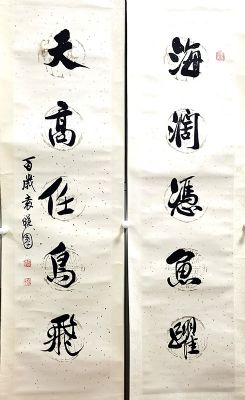 海闊憑魚躍
天高任鳥飛
百歲袁曉園